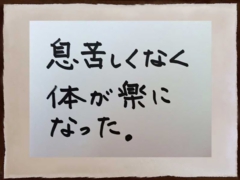 息苦しくなく
体が楽に
なった。